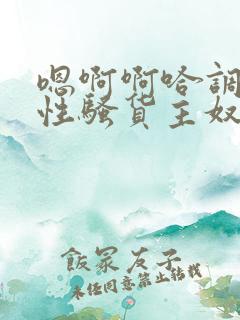 嗯啊啊哈調
性騷货主奴
飯冢友子
未经同意禁止转载